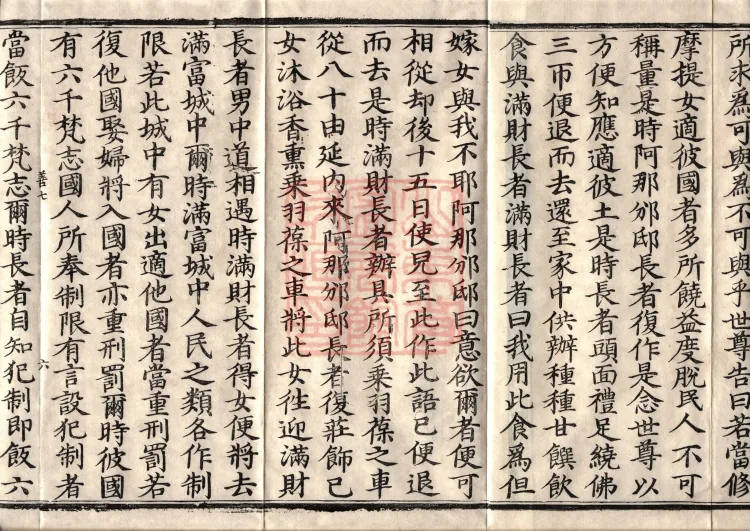 所求為可與為不可與乎世尊告曰若當修
摩提女適彼國者多所饒益度脫民人不可
稱量是時阿那邠邸長者復作是念世尊以
方便知應適彼土是時長者頭面禮足繞佛
三帀便退而去還至家中供辦種種甘饌飲
食與滿財長者滿財長者曰我用此食為但
嫁女與我不耶阿那邠邸曰意欲爾者便可
相從却後十五日使兒至此作此語已便退
而去是時滿財長者辦具所須乘羽葆之車
從八十由延內來阿那邠邸長者復莊飾己
女沐浴香熏乘羽葆之車將此女往迎滿財
長者男中道相遇時滿財長者得女便將去
滿富城中爾時滿富城中人民之類各作制
限若此城中有女出適他國者當重刑罰若
復他國娶婦將入國者亦重刑罰爾時彼國
有六千梵志國人所奉制限有言設犯制者
善七 六
當飯六千梵志爾時長者自知犯制即飯六